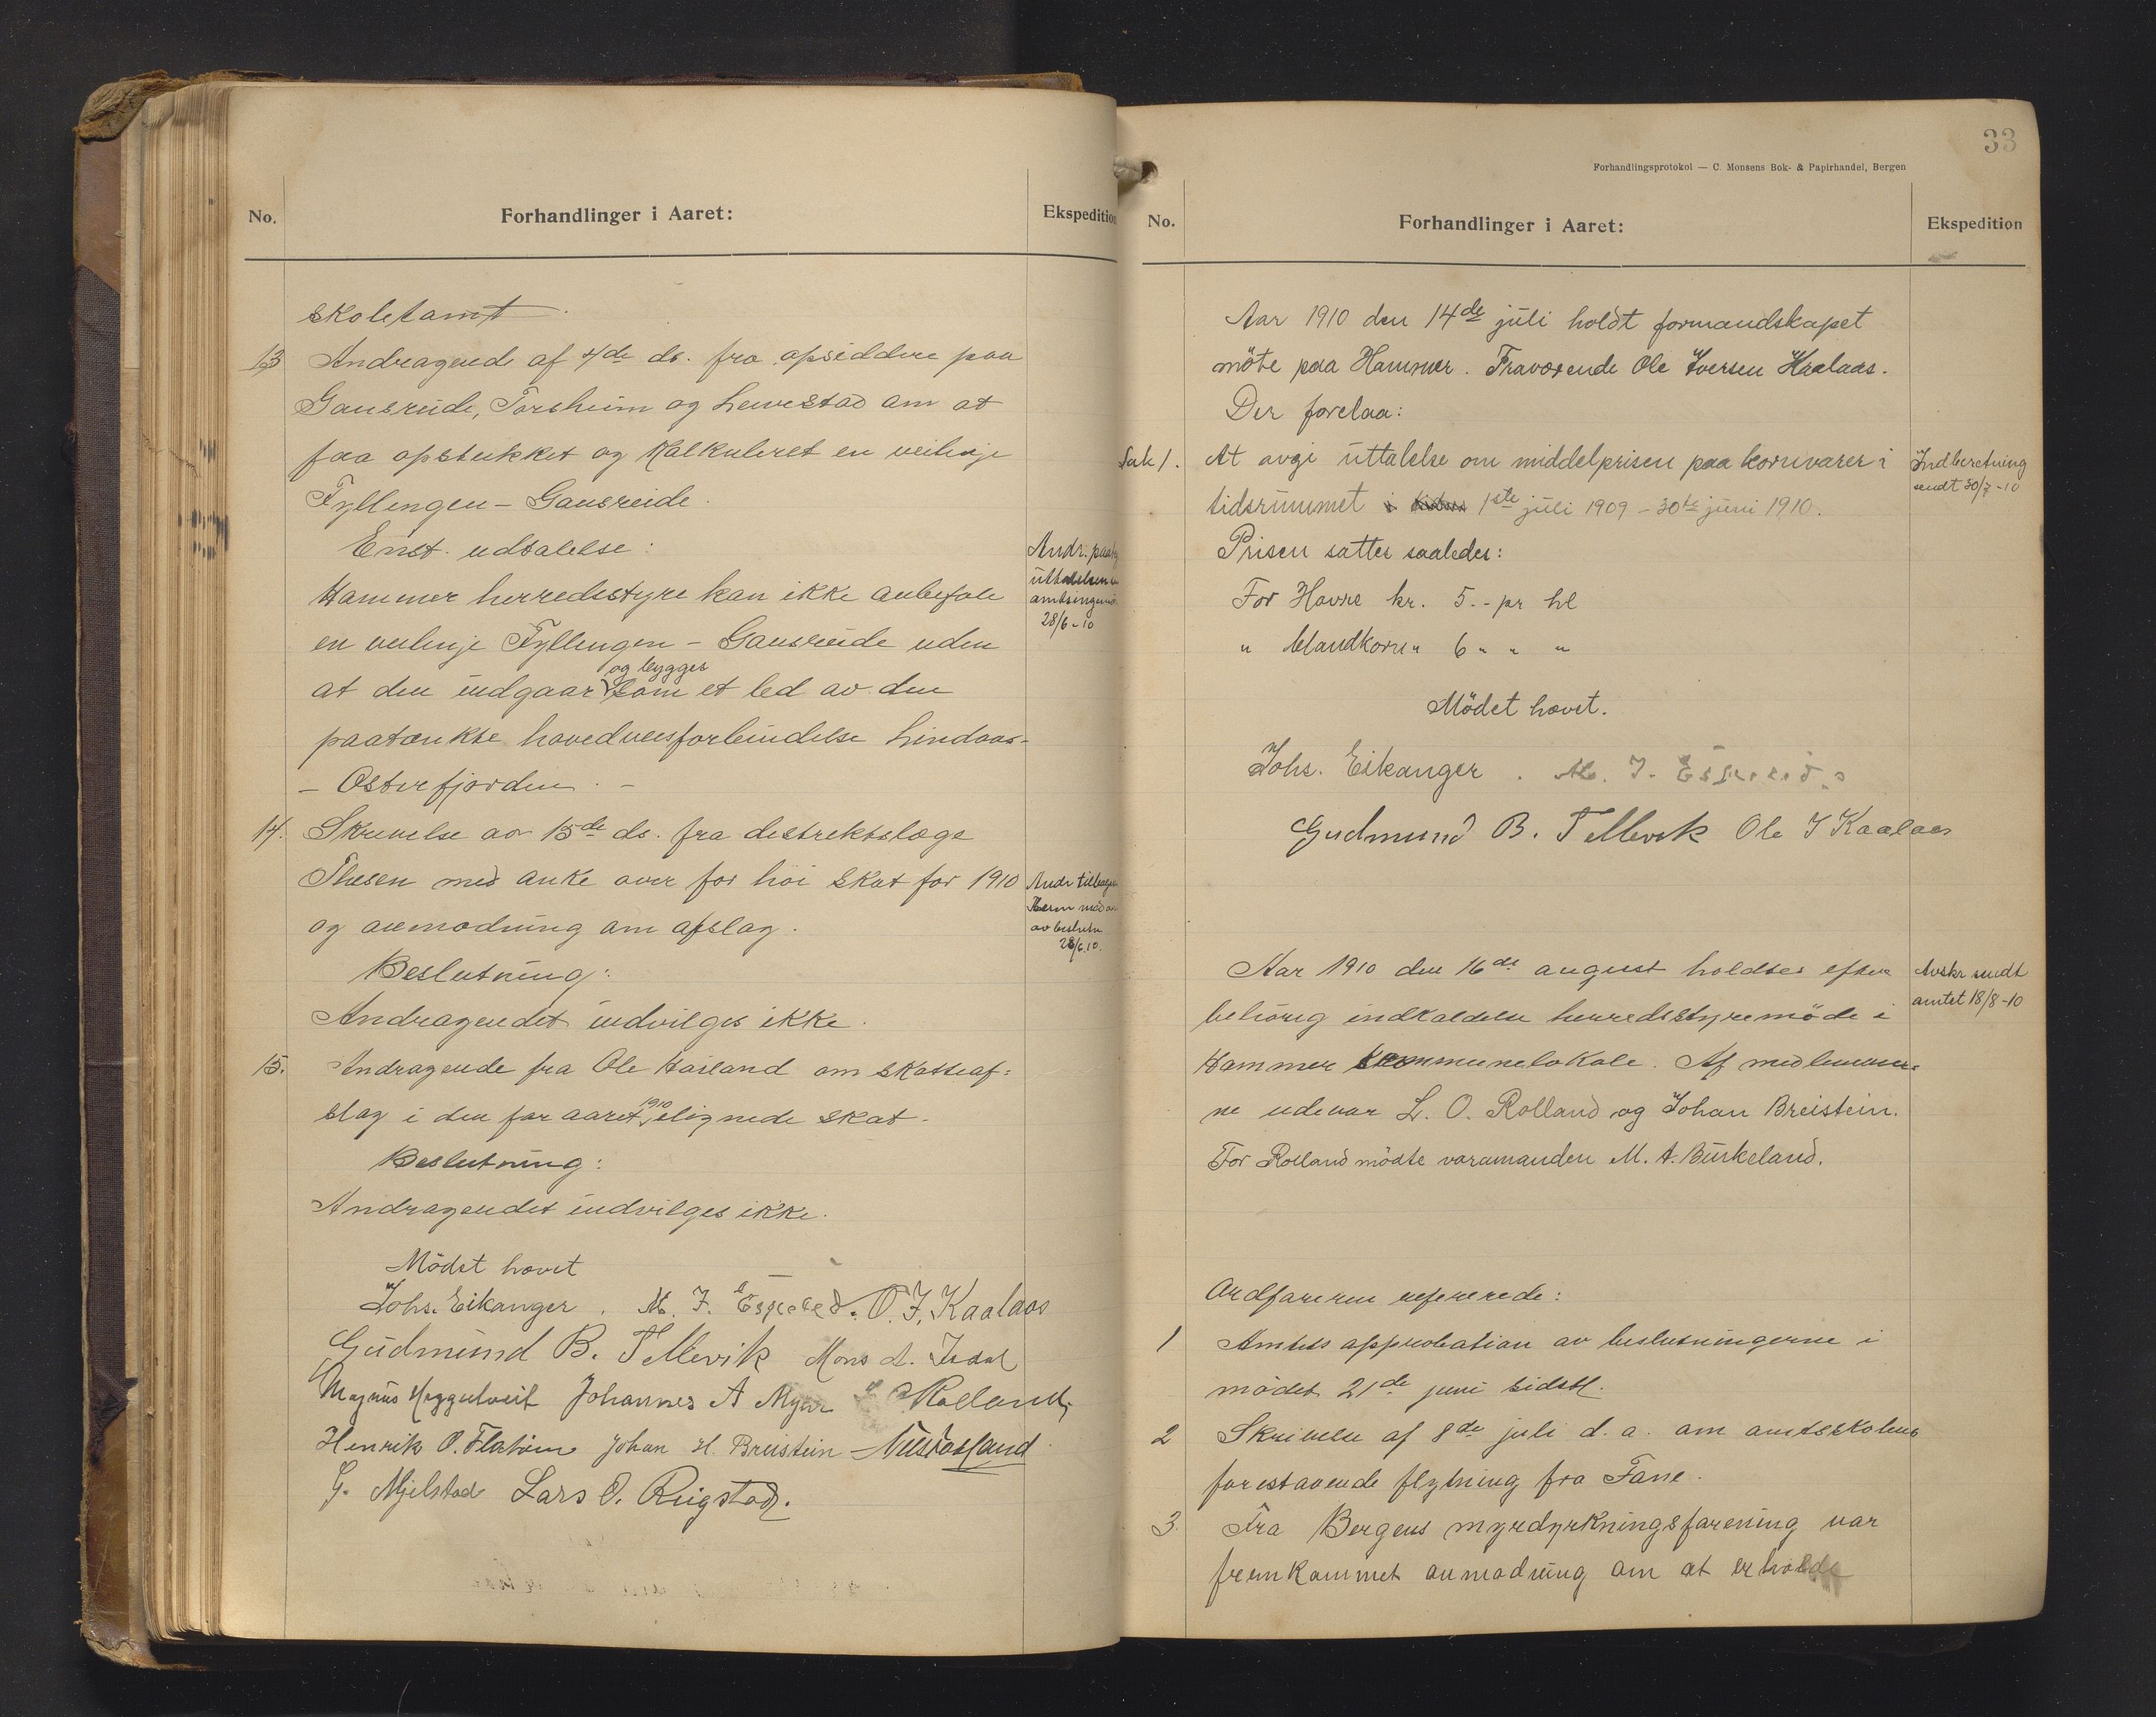 No.
Forhandlinger i Aaret:
Ekspedition
skoletomt
13 Andragende af 4de ds. fra opsiddere paa
Gausreide, Torsheim og Lervestad om at
faa opstukket og kalkuleret en veilinje
Fyllingen - Gausreide.
Enst. udtalelse:
Hammer herredsstyre kan ikke anbefale
en veilinje Fyllingen - Gausreide uden
og bygges
at den indgaar som et led av den
paatænkte hovedveisforbindelse Lindaas-
- Osterfjorden. -
Andr.
uttalelsen
28/6-10
14. Skrivelse av 15de ds. fra distriktslæge
Thesen med anke over for høi skat for 1910
og anmodning om afslag.
Andr
28/6.10.
Beslutning:
Andragendet indvilges ikke.
15. Andragende fra Ole Hosland om skatteaf=
1910
slag i den for aaret ilignede skat.
Beslutning:
Andragendet indvilges ikke.
Mödet hævet
Johs. Eikanger. M. J. Espeled. O. J. Kaalaas
Gudmund B. Tellevik Mons A. Isdal
Magnus Heggertveit Johannes A Myhr Rolland
Henrik O. Flatøen Johan H. Breistein Nils Hosland
G. Mjelstad Lars O. Rigstad.
33
Forhandlingsprotokol — C. Monsens Bok- & Papirhandel, Bergen
No.
Forhandlinger i Aaret:
Ekspedition
Aar 1910 den 14de juli holdt formandskapet
möte paa Hammer. Fraværende Ole Iversen Kaalaas.
Der forelaa:
Sak 1. At avgi uttalelse om middelprisen paa kornvarer i
tidsrummet i 1ste juli 1909 - 30te juni 1910.
Indberetning
sendt 30/7-10
Prisen sattes saaledes:
For Havre kr. 5.- pr hl
" blandkorn " 6 " " "
Mödet hævet.
Johs. Eikanger. M. J. Espeled.
Gudmund B. Tellevik Ole I Kaalaas
Aar 1910 den 16de august holdtes efter
behörig indkaldelse herredsstyremöde i
Hammer kommunelokale. Af medlemmer=
ne udevar L. O. Rolland og Johan Breistein.
For Rolland mödte varamanden M. A. Burkeland.
Avskr sendt
amtet 18/8-10
Ordføreren refererede:
1 Amtets approbation av beslutningerne i
mödet 21de juni sidstl.
2 Skrivelse af 8de juli d. a. om amtsskolens
forestaaende flytning fra Fane.
3. Fra Bergens myrdyrkningsforening var
fremkommet anmodning om at erholde